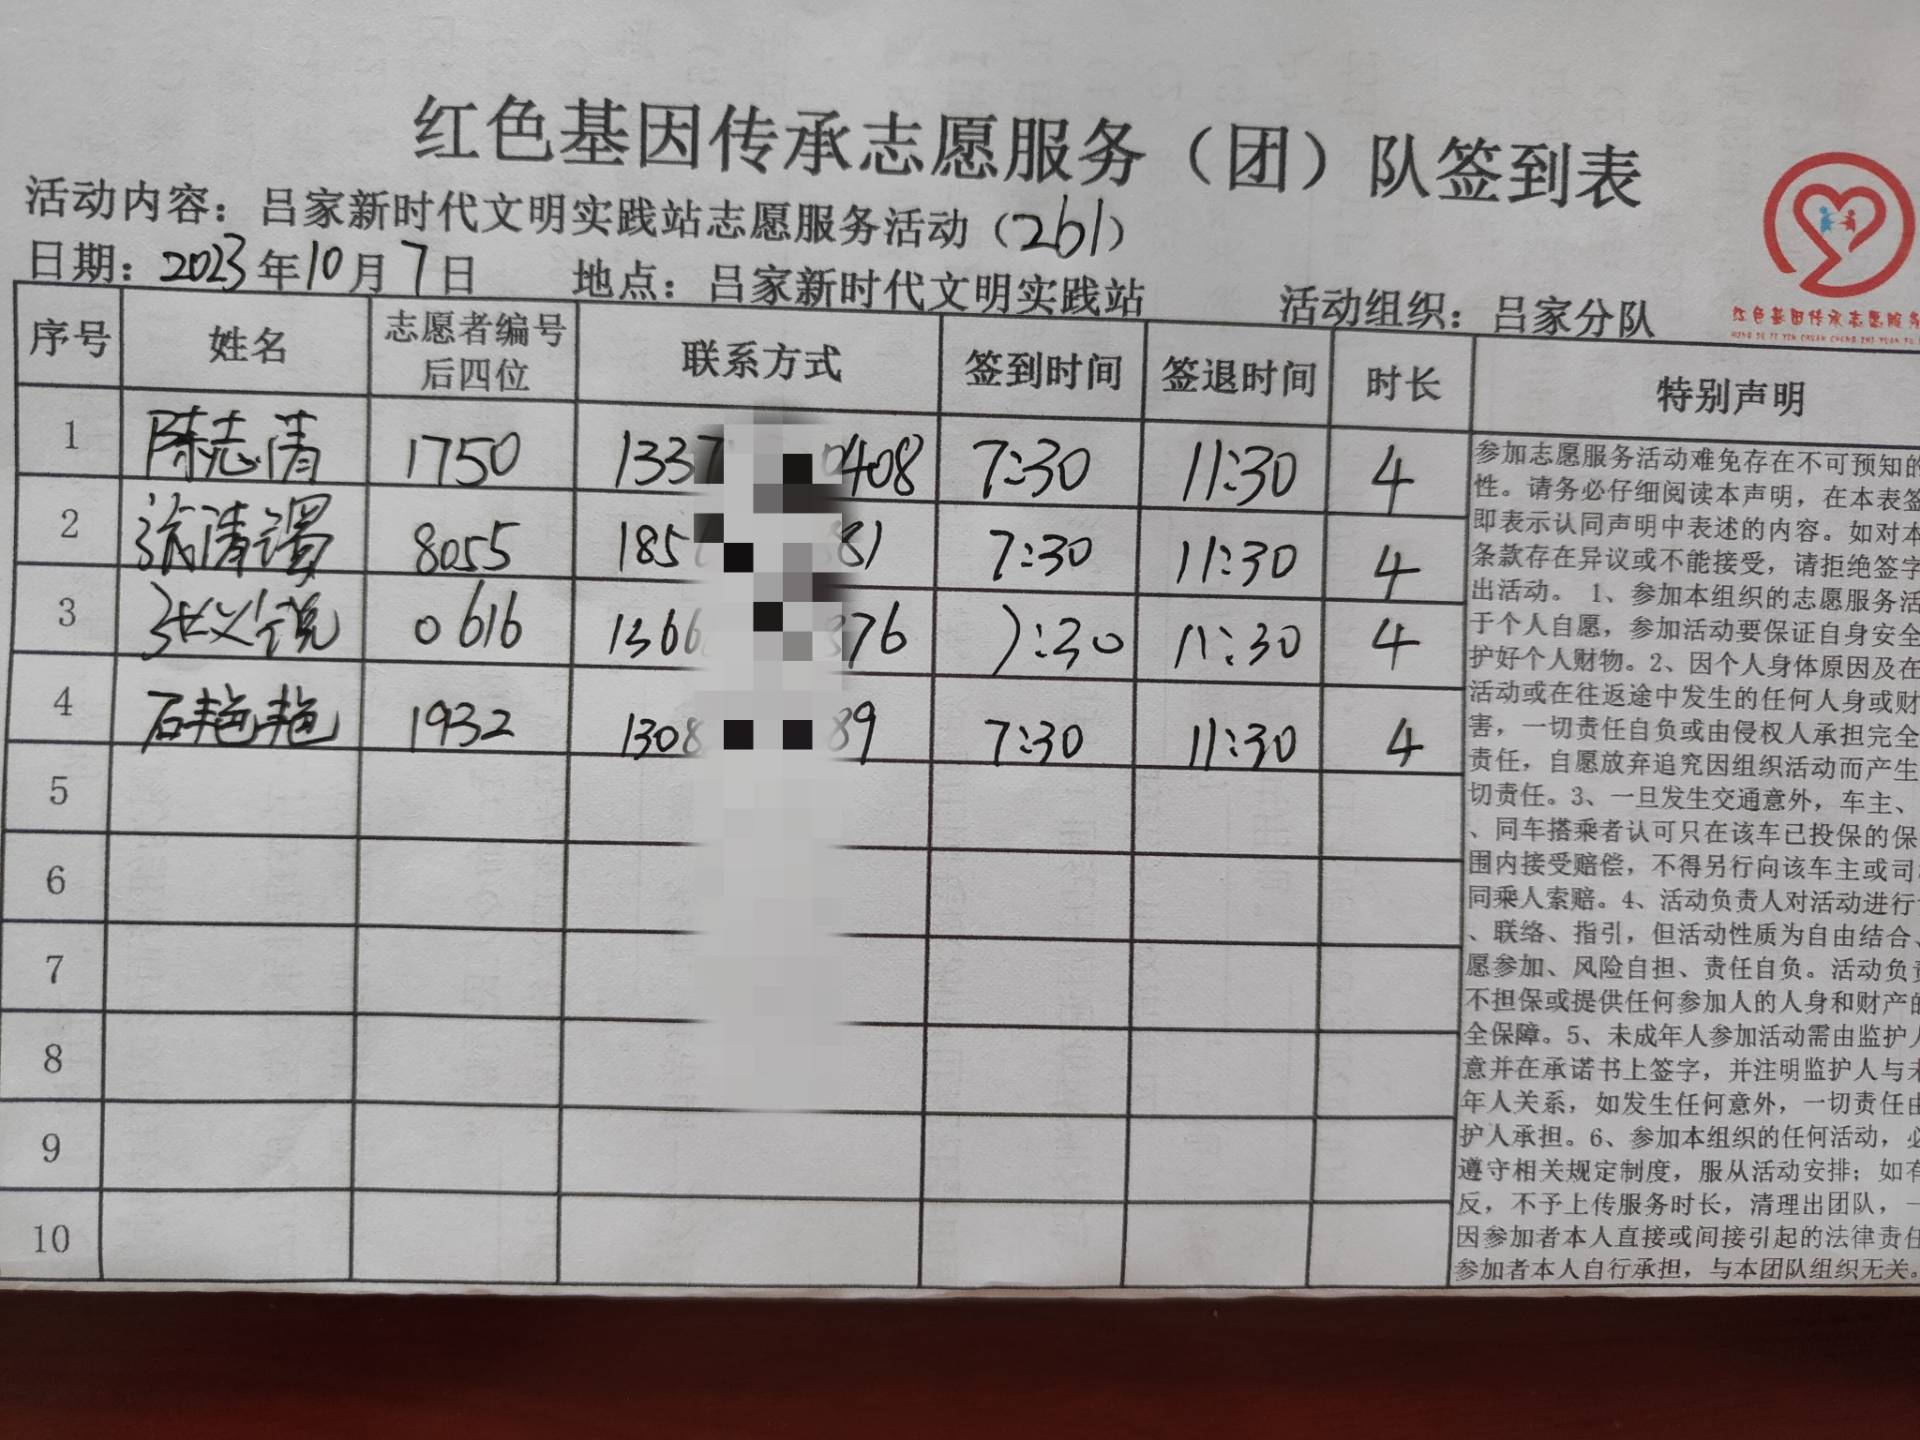 红色基因传承志愿服务（团）队签到表
活动内容：吕家新时代文明实践站志愿服务活动（261）
日期：2023年10月7日 地点：吕家新时代文明实践站 活动组织：吕家分队
红色基因传承志愿服务
序号 姓名 志愿者编号后四位 联系方式 签到时间 签退时间 时长 特别声明
1 陈志清 1750 1337 0408 7:30 11:30 4
2 清 8055 185 81 7:30 11:30 4
3 张义 0616 1366 376 7:30 11:30 4
4 石艳艳 1932 1308 89 7:30 11:30 4
5
6
7
8
9
10
参加志愿服务活动难免存在不可预知的
性。请务必仔细阅读本声明，在本表签
即表示认同声明中表述的内容。如对本
条款存在异议或不能接受，请拒绝签字
出活动。 1、参加本组织的志愿服务活
于个人自愿，参加活动要保证自身安全
护好个人财物。2、因个人身体原因及在
活动或在往返途中发生的任何人身或财
害，一切责任自负或由侵权人承担完全
责任，自愿放弃追究因组织活动而产生
切责任。3、一旦发生交通意外，车主、
、同车搭乘者认可只在该车已投保的保
围内接受赔偿，不得另行向该车主或司
同乘人索赔。4、活动负责人对活动进行
、联络、指引，但活动性质为自由结合、
愿参加、风险自担、责任自负。活动负责
不担保或提供任何参加人的人身和财产的
全保障。5、未成年人参加活动需由监护人
意并在承诺书上签字，并注明监护人与未
年人关系，如发生任何意外，一切责任由
护人承担。6、参加本组织的任何活动，必
遵守相关规定制度，服从活动安排；如有
反，不予上传服务时长，清理出团队，一
因参加者本人直接或间接引起的法律责任
参加者本人自行承担，与本团队组织无关。